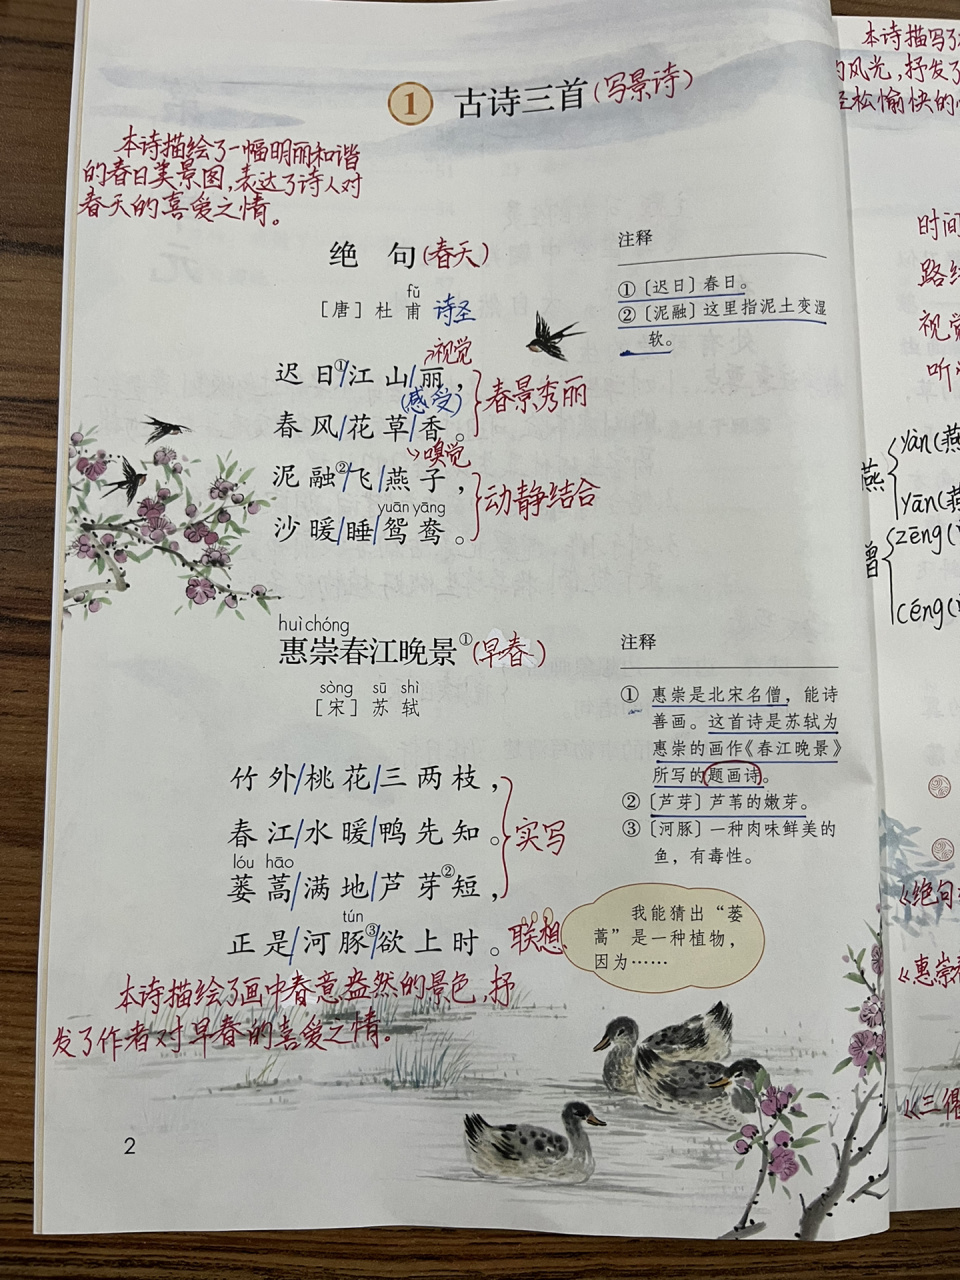 1 古诗三首(写景诗)
本诗描绘了一幅明丽和谐
的春日美景图,表达了诗人对
春天的喜爱之情。
绝 句(春天)
fǔ
[唐]杜 甫 诗圣
视觉
迟日①/江山/丽,
(感受)
春景秀丽
春风/花草/香。
嗅觉
泥融②/飞/燕子,
动静结合
yuān yāng
沙暖/睡/鸳鸯。
注释
①〔迟日〕春日。
②〔泥融〕这里指泥土变湿
软。
huì chóng
惠崇春江晚景①(早春)
sòng sū shì
[宋]苏 轼
竹外/桃花/三两枝,
春江/水暖/鸭先知。
实写
lóu hāo
蒌蒿/满地/芦芽②短,
tún
正是/河豚③/欲上时。联想
注释
① 惠崇是北宋名僧,能诗
善画。这首诗是苏轼为
惠崇的画作《春江晚景》
所写的题画诗。
②〔芦芽〕芦苇的嫩芽。
③〔河豚〕一种肉味鲜美的
鱼,有毒性。
我能猜出“蒌
蒿”是一种植物,
因为……
本诗描绘了画中春意盎然的景色,抒
发了作者对早春的喜爱之情。
2
本诗描写了
的风光,抒发了
轻松愉快的
时间
路线
视觉
听
燕
yàn(燕
yān(燕
曾
zēng(
céng(
《绝句
《惠崇
《三衢